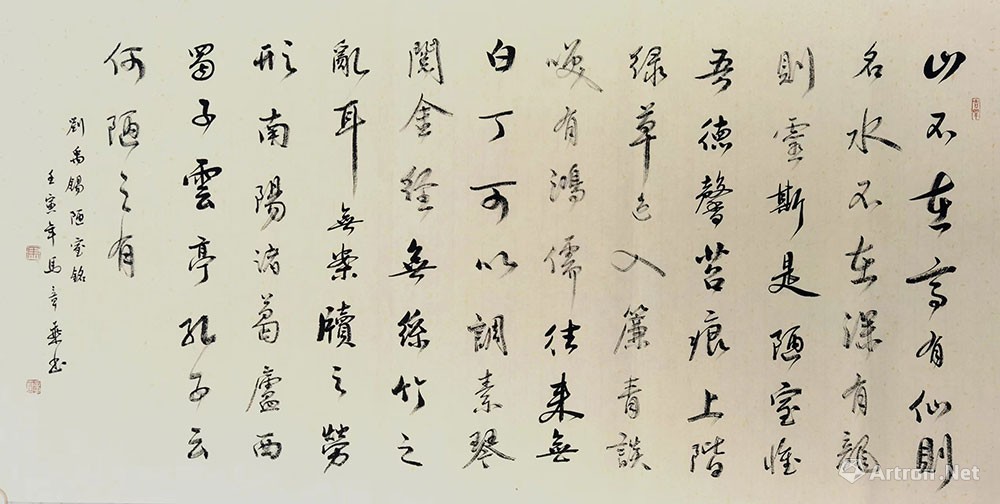 山不在高有仙則
名水不在深有龍
則靈斯是陋室惟
吾德馨苔痕上階
綠草色入簾青談
咲有鴻儒往來無
白丁可以調素琴
閱金經無絲竹之
亂耳無案牘之勞
形南陽諸葛廬西
蜀子雲亭孔子云
何陋之有
劉禹錫陋室銘
壬寅年馬章乘书
Artron.Net